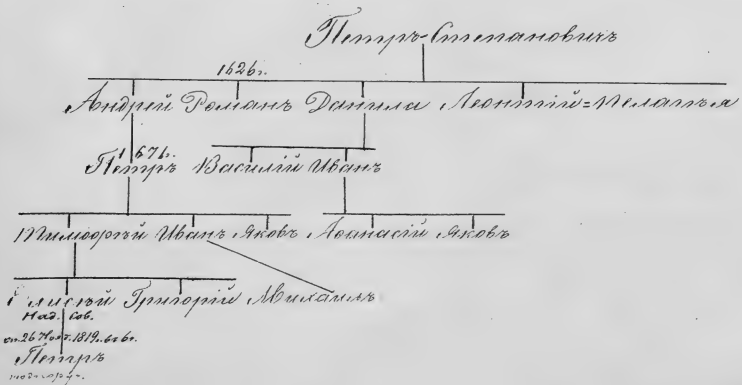 Петръ Степановичъ
1626г.
Андрей Романъ Данила Леонтій=Пелагѣя
1676г.
Петръ Василій Иванъ
Тимоѳей Иванъ Яковъ Аѳанасій Яковъ
Елисѣй Григорій Михаилъ
Над. Сов.
1819
Петръ